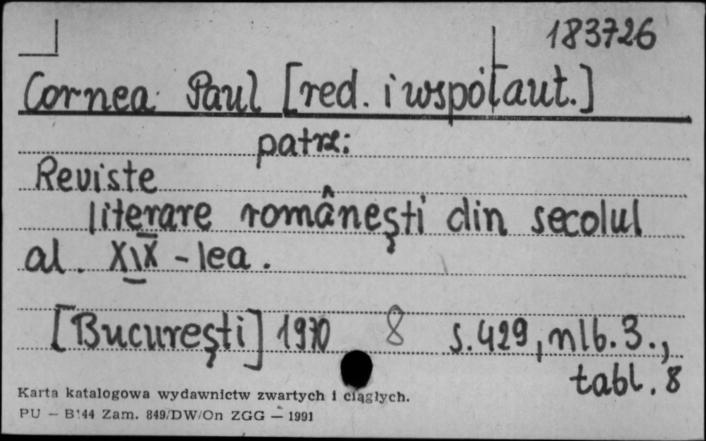 183726
Cornea Paul [red. i współaut.]
patrz:
Reviste
literare românești din secolul
al. XIX-lea.
[București] 1970 8 s. 429, nlb. 3.,
tabl. 8
Karta katalogowa wydawnictw zwartych i ciągłych.
PU — B144 Zam. 849/DW/On ZGG — 1991